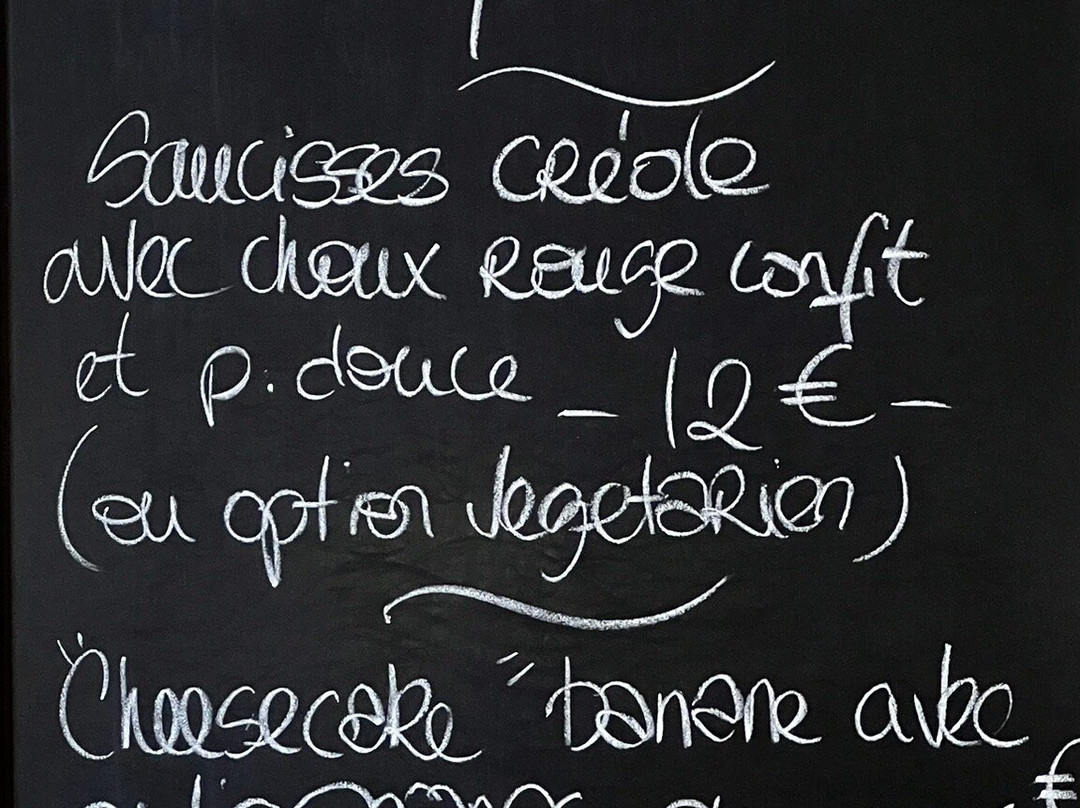 Saucisses créole
avec choux rouge confit
et p. douce - 12 € -
(ou option vegetarien)
"Cheesecake" banane avec
€